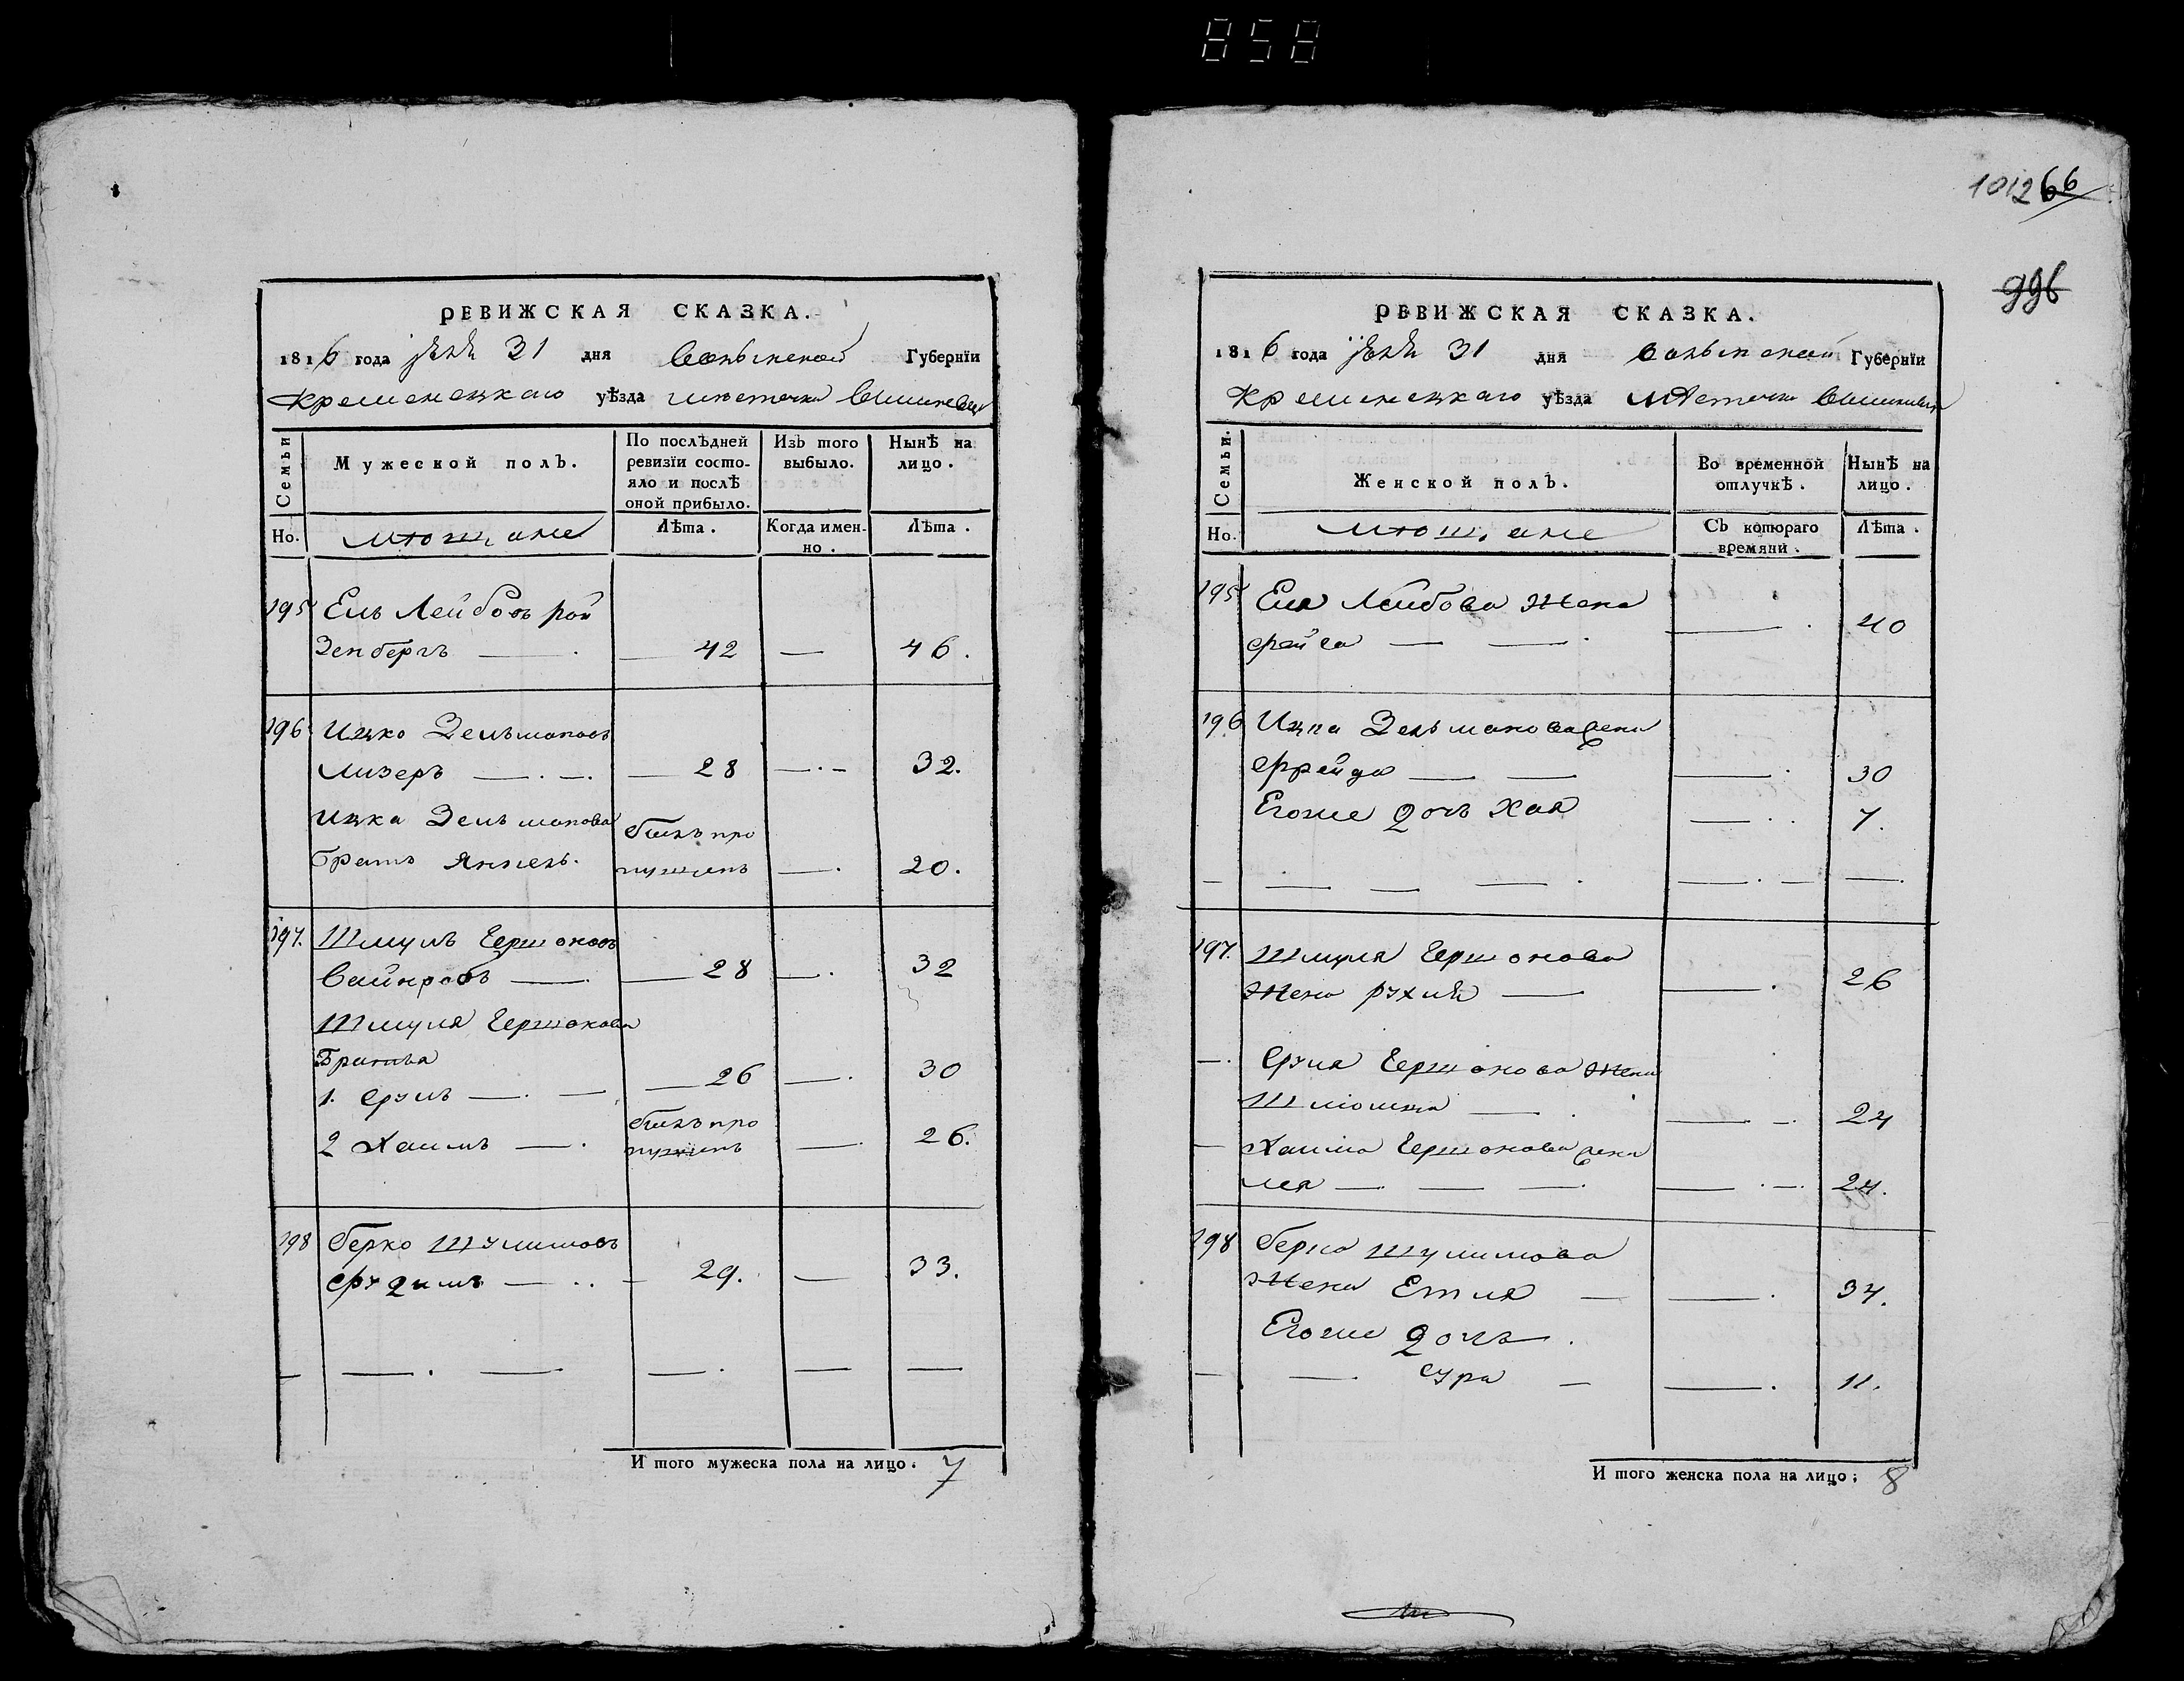 858
РЕВИЖСКАЯ СКАЗКА.
1816 года 31 дня Волынской Губернїи
Кременецкаго уѣзда местечка Вишневца
Семьи
Мужеской полъ.
По послѣдней ревизїи состо-
яло и послѣ оной прибыло.
Изъ того выбыло.
Нынѣ на лицо.
Но.
мещане
Лѣта.
Когда имен-
но.
Лѣта.
195 Ель Лейбовъ рой
Зенбергъ — 42 — 46.
196 Ицко Зельмановъ
Лизеръ — 28 — 32.
Ицка Зельманова былъ про
братъ Янкель. пущенъ — 20.
197. Шмуль Гершоновъ
Вайнробъ — 28 — 32
Шмуля Гершонова
Братья
1. Сруль — 26 — 30
былъ про
2 Хаимъ — пущенъ — 26.
198 Берко Шулимовъ
— 29. — 33.
И того мужеска пола на лицо. 7
1012 66
996
РЕВИЖСКАЯ СКАЗКА.
1816 года 31 дня Волынской Губернїи
Кременецкаго уѣзда мѣстечка Вишневца
Семьи.
Женской полъ.
Во временной отлучкѣ.
Нынѣ на лицо.
Но.
мещане
Съ котораго времяни.
Лѣта.
195 Еля Лейбова жена
фейга — 40
196 Ицка Зельманова жена
Фрейда — 30
Егоже дочь Хая — 7.
197. Шмуля Гершонова
жена рухля — 26
Сруля Гершонова жена
— 24
Хаима Гершонова жена
лея — 24.
198 Берка Шулимова
жена Етля — 34.
Егоже дочь.
Сура — 11.
И того женска пола на лицо; 8